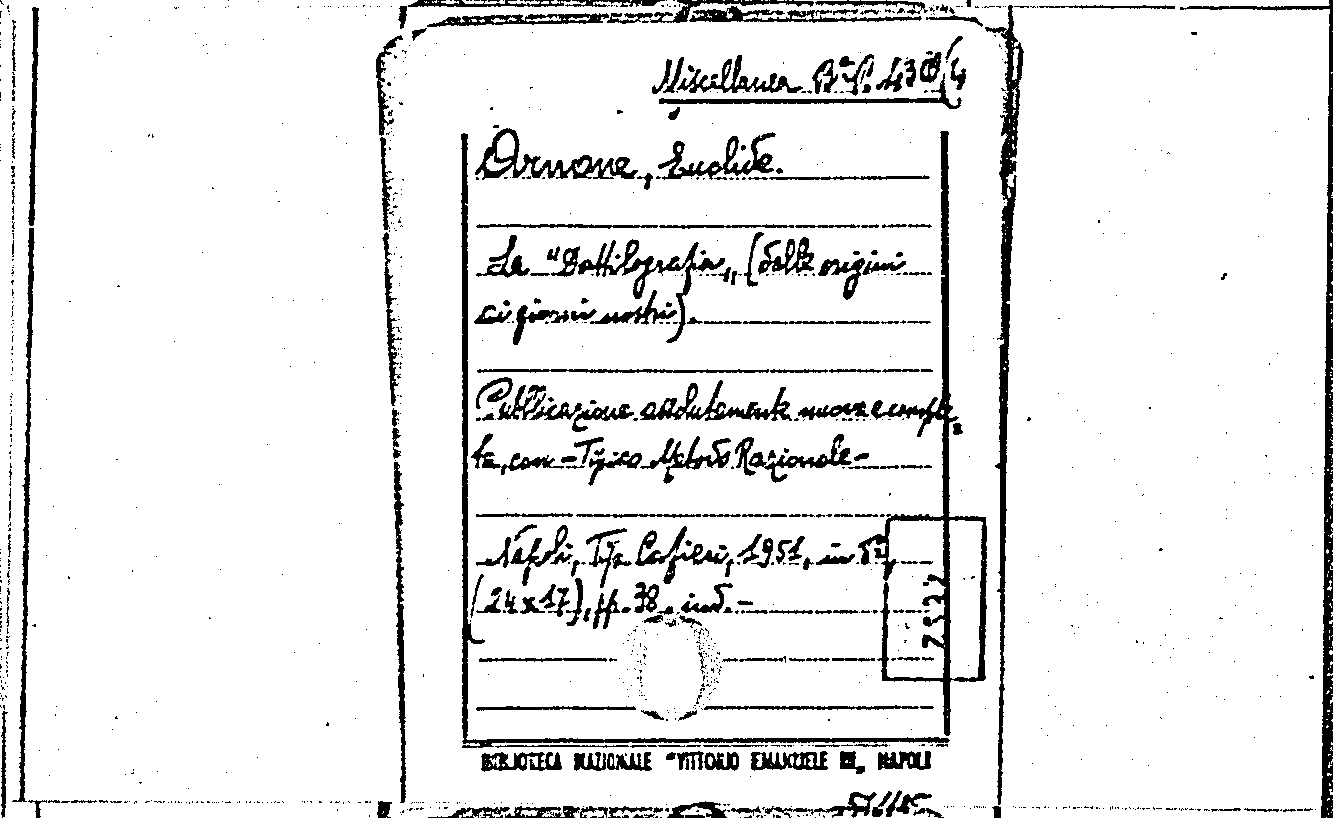 Miscellanea Bª P. 430(4
Arnone, Euclide.
La "Dattilografia„ (dalle origini
ai giorni nostri).
Pubblicazione assolutamente nuova e comple=
ta, con - Tipico Metodo Razionale -
Napoli, Tip. Cafieri, 1951, in 8º,
(24x17), pp. 38. ind. -
BIBLIOTECA NAZIONALE "VITTORIO EMANUELE III„ NAPOLI